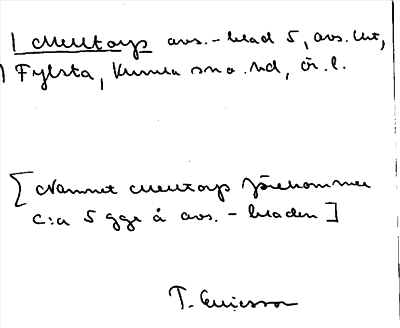 Melltorp avs.-blad 5, avs. Ent,
Fylsta, Kumla sn o. hd, Ör. l.
[Namnet Melltorp förekommer
c:a 5 ggr å avs.-bladen]
T. Ericsson